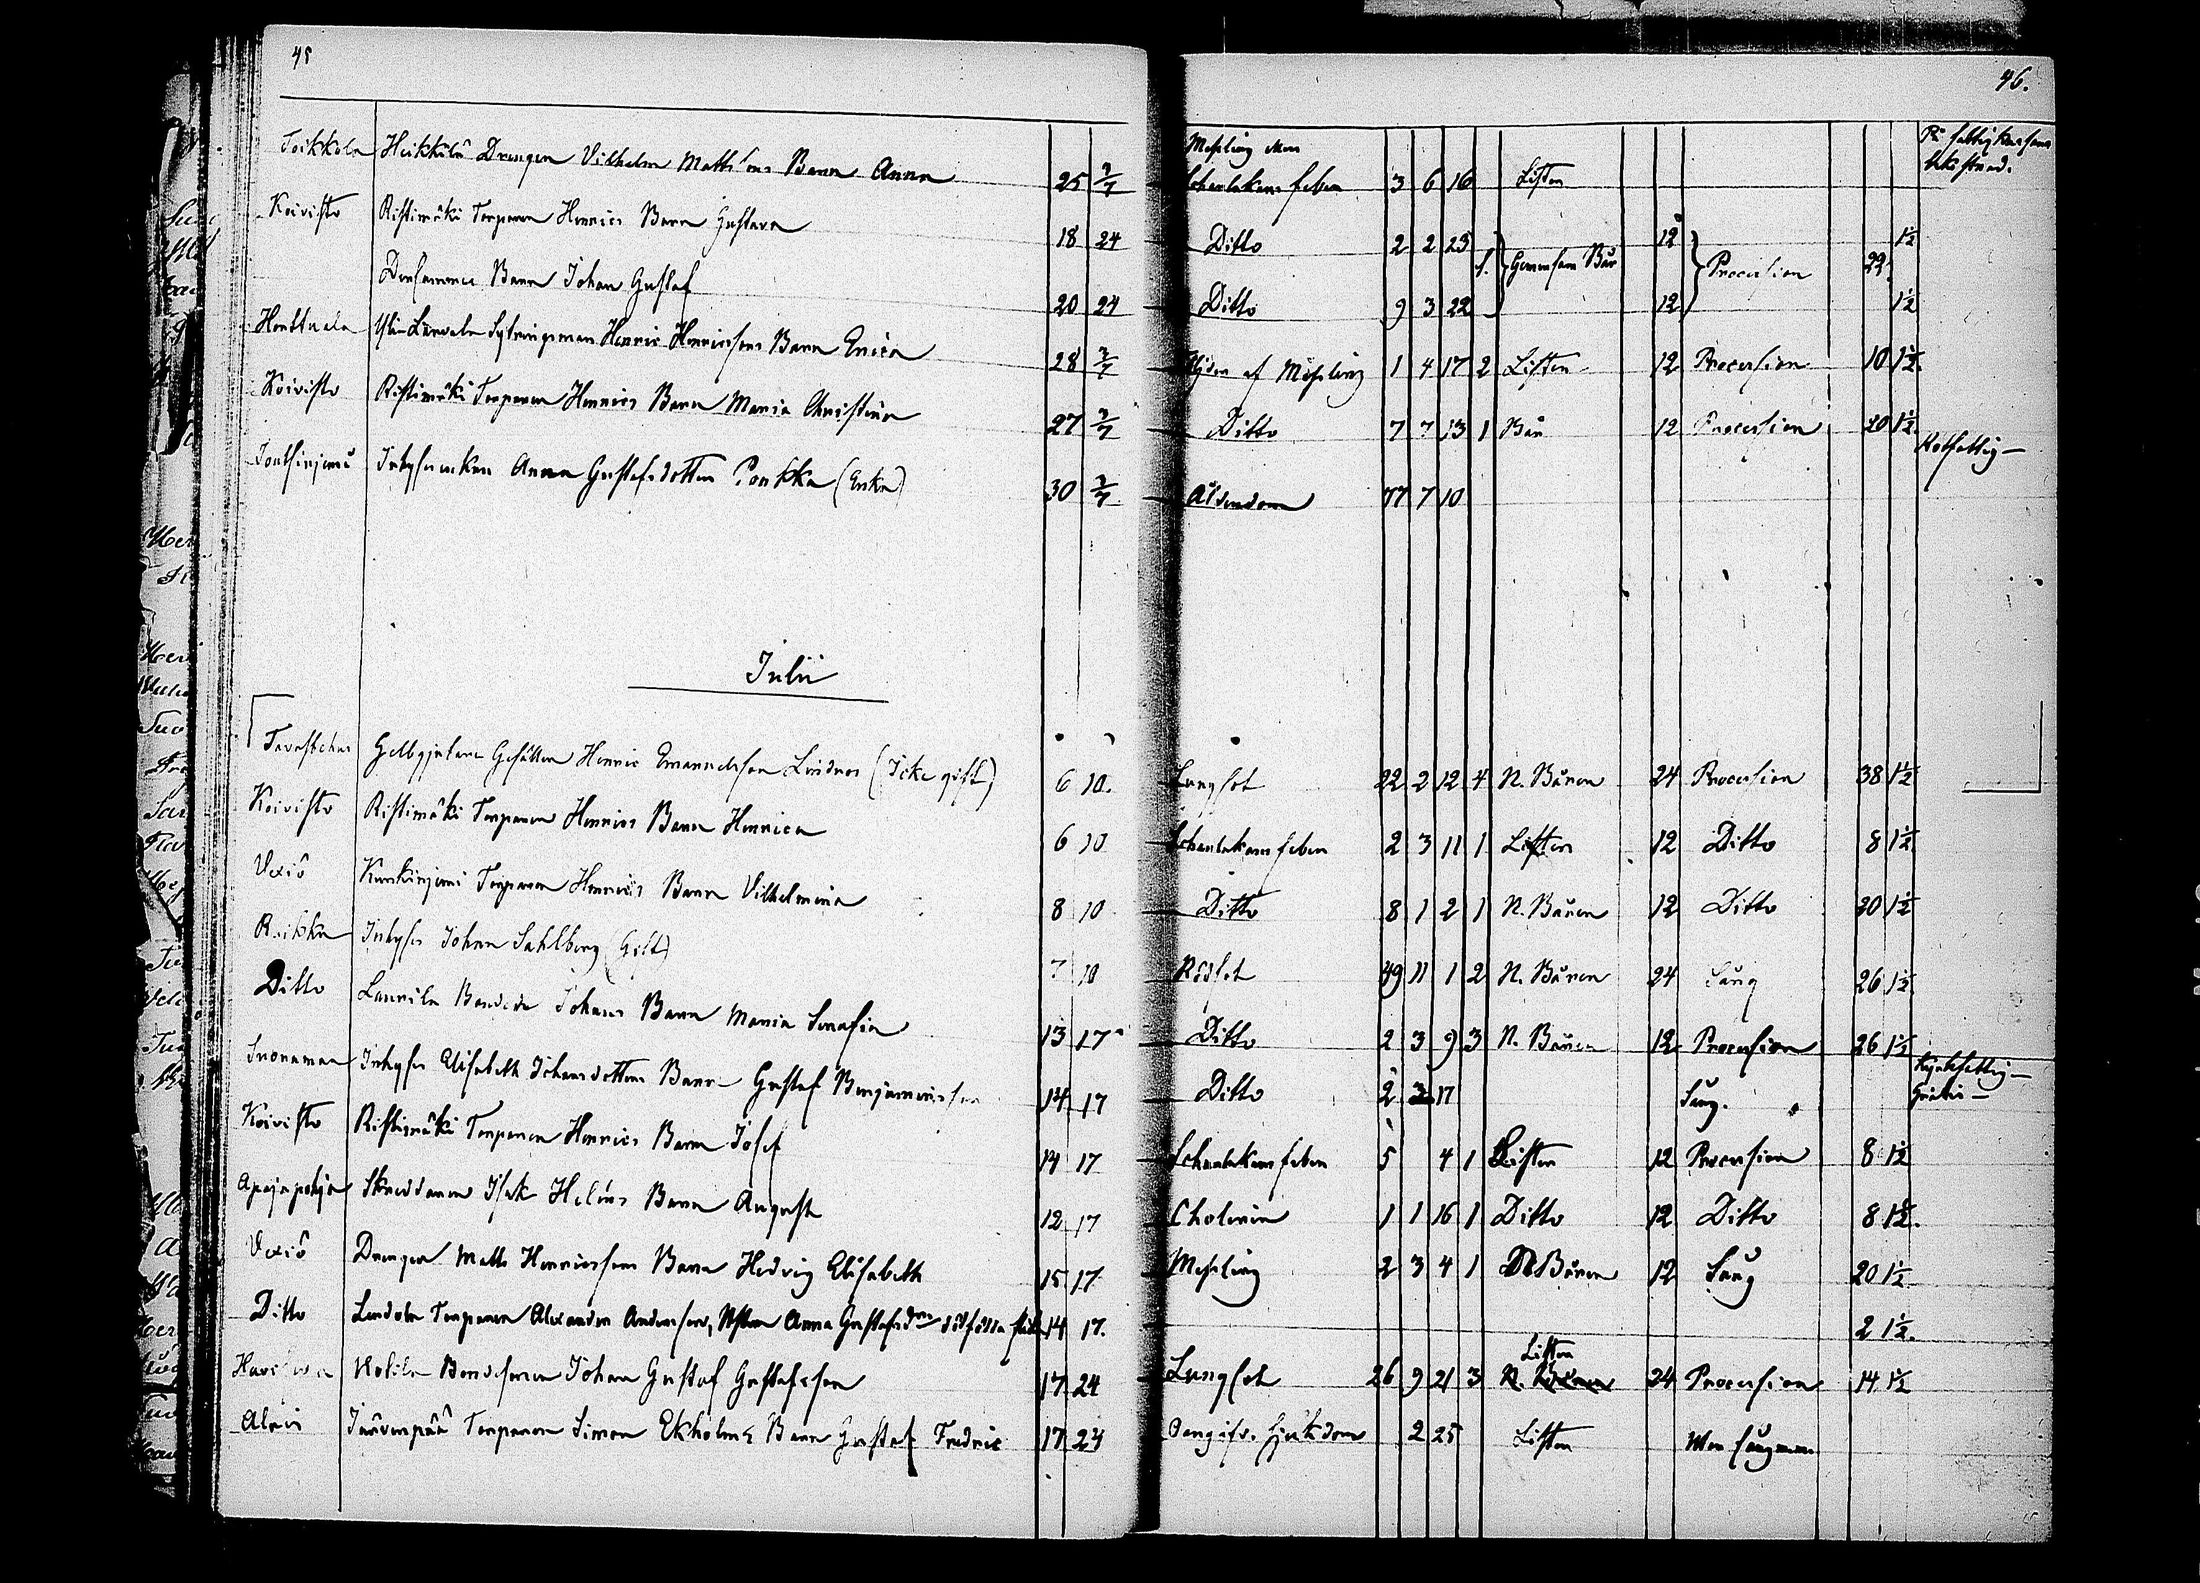 45
46.
Toikkola Heikkilä Drengen Vilhelm Matts'ons Barn Anna 25 2/7 Messling utan Scharlakans feber 3 6 16 Listen På fattigkassans bekostnad.
Koivisto Ristimäki Torparen Henrics Barn Gustava 18 24 Ditto 2 2 23 1. Gemensam Bår 12 Procession 22 1½
Densammes Barn Johan Gustaf 20 24 Ditto 9 3 22 12 1½
Henric Henricssons Barn Erica 28 2/7 af Messling 1 4 17 2 Listen 12 Procession 10 1½
Koivisto Ristimäki Torparen Henrics Barn Maria Christina 27 2/7 Ditto 7 7 13 1 Bår 12 Procession 20 1½
Inhyses enkan Anna Gustafsdotter Ponkka (Enka) 30 2/7 Ålderdom 77 7 10 Rotfattig
Julii
Tavastehus Gelbgjutare Gesällen Henric Emanuelsson Lindros (Icke gift) 6 10. Lungsot 22 2 12 4 N. Båren 24 Procession 38 1½
Koivisto Ristimäki Torparen Henrics Barn Henrica 6 10 Scharlakans feber 2 3 11 1 Listen 12 Ditto 8 1½
Vexiö Kurkinjerni Torparen Henrics Barn Vilhelmina 8 10 Ditto 8 1 2 1 N. Båren 12 Ditto 20 1½
Reikko Inhyses Johan Sahlberg (Gift) 7 10 Rödsot 49 11 1 2 N. Båren 24 Sång 26 1½
Ditto Laurila Bonden Johans Barn Maria Serafia 13 17 Ditto 2 3 9 3 N. Båren 12 Procession 26 1½
Suonamaa Inhyses Elisabeth Johansdotters Barn Gustaf Benjaminsson 14 17 Ditto 2 3 17 Sång. Gratis
Koivisto Ristimäki Torparen Henrics Barn Josef 14 17 Scharlakans feber 5 4 1 Listen 12 Procession 8 1½
Apajapohja Skreddaren Isak Heléns Barn August 12 17 Cholerin 1 1 16 1 Ditto 12 Ditto 8 1½
Vexiö Drengen Matts Henricssons Barn Hedvig Elisabeth 15 17 Messling 2 3 4 1 N Båren 12 Sång 20 1½
Ditto Torparen Alexander Andersson, Hustru Anna Gustafsdrs dödfödda 14 17. 2 1½
Uotila Bondesonen Johan Gustaf Gustafsson 17 24 Lungsot 26 9 21 3 Listen N. Båren 24 Procession 14 1½
Järvenpää Torparen Simon Ekholms Barn Gustaf Fredric 17 24 Oangifv. Sjukdom 2 25 Listen